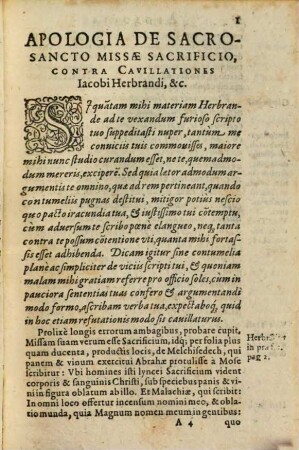 1
APOLOGIA DE SACRO-
SANCTO MISSÆ SACRIFICIO,
CONTRA CAVILLATIONES
Iacobi Herbrandi, &c.
SI quãtam mihi materiam Herbran-
de ad te vexandum furioso scripto
tuo suppeditasti nuper, tantum me
conuiciis tuis commouisses, maiore
mihi nunc studio curandum esset, ne te, quemadmo-
dum mereris, exciperẽ. Sed quia lator admodum ar-
gumentis te omnino, quæ ad rem pertineant, quando
contumeliis pugnas destitui, mitigor potius nescio
quo pacto iracundia tua, & iustissimo tui cõtemptu,
cum aduersum te scribo pœne elangueo, neq, tanta
contra te possum cõtentione vti, quanta mihi fortas-
sis esset adhibenda. Dicam igitur sine contumelia
planè ac simpliciter de viciis scripti tui, & quoniam
malam mihi gratiam referre pro officio soles, cum in
pauciora sententias tuas confero & argumentandi
modo formo, ascribam verba tua, expectaboq, quid
in hoc etiam refutationis modo sis cauillaturus.
Prolixè longis errorum ambagibus, probare cupit,
Missam suam verum esse Sacrificium, idq; per folia plus
quam ducenta, productis locis, de Melchisedech, qui
panem & vinum exercitui Abrahæ protulisse à Mose
scribitur: Vbi homines isti lyncei Sacrificium vident
corporis & sanguinis Christi, sub speciebus panis & vi-
ni in figura oblatum ab illo. Et Malachiæ, qui scribit:
In omni loco offertur incensum nomini meo, & obla-
tio munda, quia Magnum nomen meum in gentibus:
A 4
quo
pag 2.